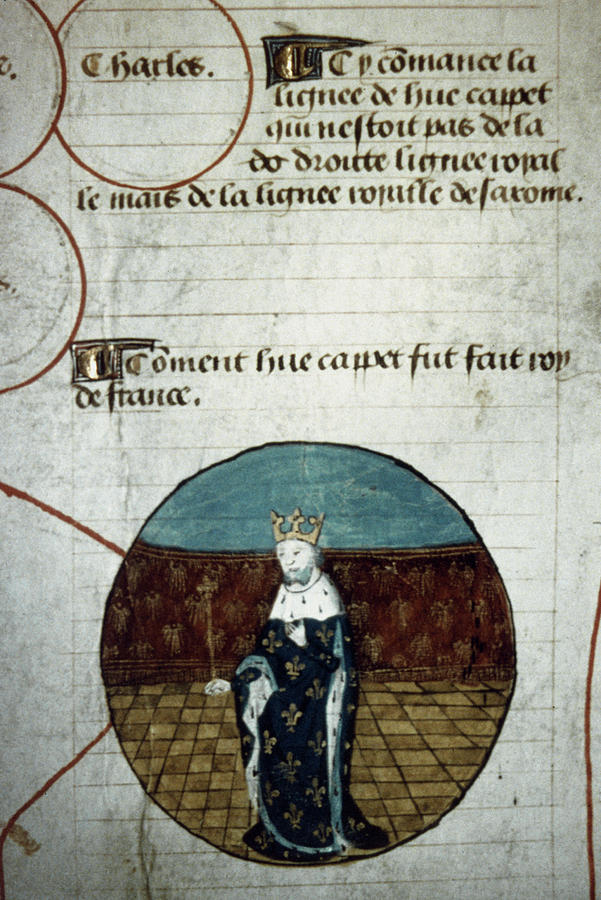 r.
Charles.
Cy cōmance la
lignee de hue cappet
qui nestoit pas de la
do droitte lignee royal
le mais de la lignee royalle de saxonie.
Cōment hue cappet fut fait roy
de france.